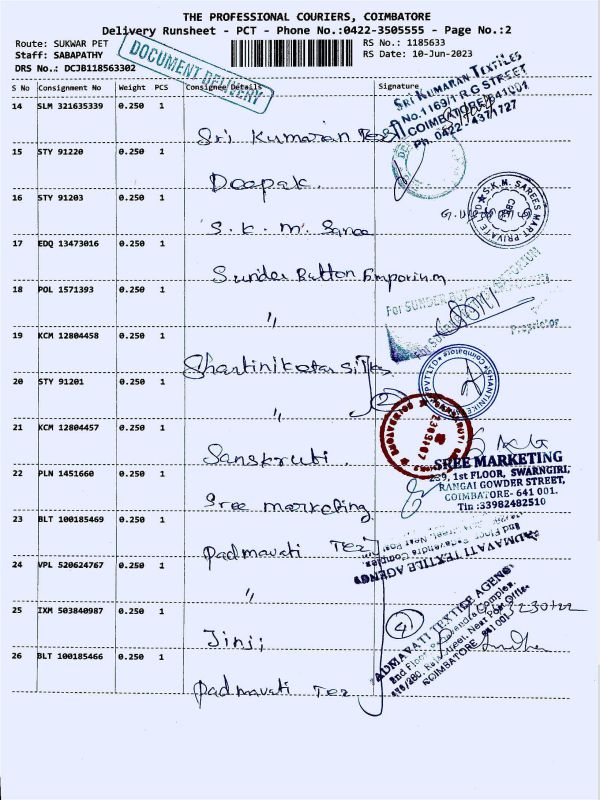 THE PROFESSIONAL COURIERS, COIMBATORE
Delivery Runsheet - PCT - Phone No.:0422-3505555 - Page No.:2
Route: SUKWAR PET RS No.: 1185633
Staff: SABAPATHY RS Date: 10-Jun-2023
DRS No.: DCJB118563302
DOCUMENT DELIVERY
S No Consignment No Weight PCS Consignee Details Signature
14 SLM 321635339 0.250 1
Sri Kumaran
SRI KUMARAN TEXTILES
No.1169/1 R.G STREET
COIMBATORE-641001
Ph: 0422 - 4371727
15 STY 91220 0.250 1
Deepak.
16 STY 91203 0.250 1
S. K. M. Saree
S.K.M. SAREES MART PRIVATE LTD
17 EDQ 13473016 0.250 1
Sunder Button Emporium
18 POL 1571393 0.250 1
"
For SUNDER
Proprietor
19 KCM 12804458 0.250 1
Shantiniketan Silks
20 STY 91201 0.250 1
"
2
PVT LTD
Coimbatore
21 KCM 12804457 0.250 1
Sanskruti.
22 PLN 1451660 0.250 1
Sree marketing
SREE MARKETING
239, 1st FLOOR, SWARNGIRI,
RANGAI GOWDER STREET,
COIMBATORE- 641 001.
Tin :33982482510
23 BLT 100185469 0.250 1
Padmavati Tex
PADMAVATI TEXTILE AGENCY
24 VPL 520624767 0.250 1
"
25 IXM 503840987 0.250 1
Jinji
4
PADMAVATI TEXTILE AGENCY
COIMBATORE - 641 001
26 BLT 100185466 0.250 1
Padmavati Tex